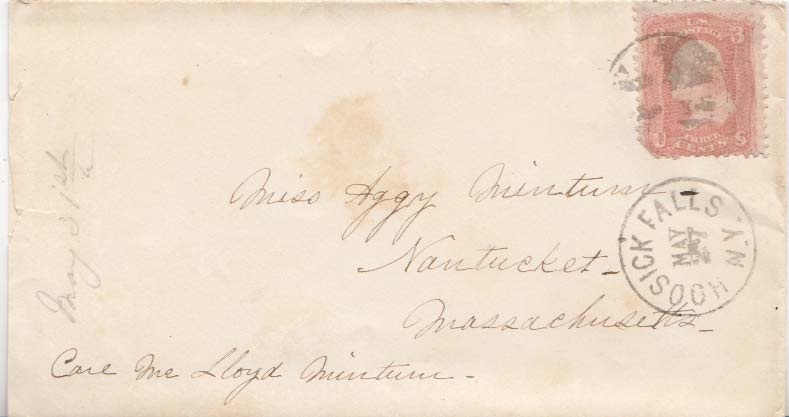 U.S.
POSTAGE
3
U THREE S
CENTS
Miss Aggy Minturn
Nantucket-
Massachusetts-
Care Mr Lloyd Minturn-
HOOSICK FALLS N.Y.
MAY
27
May 31st